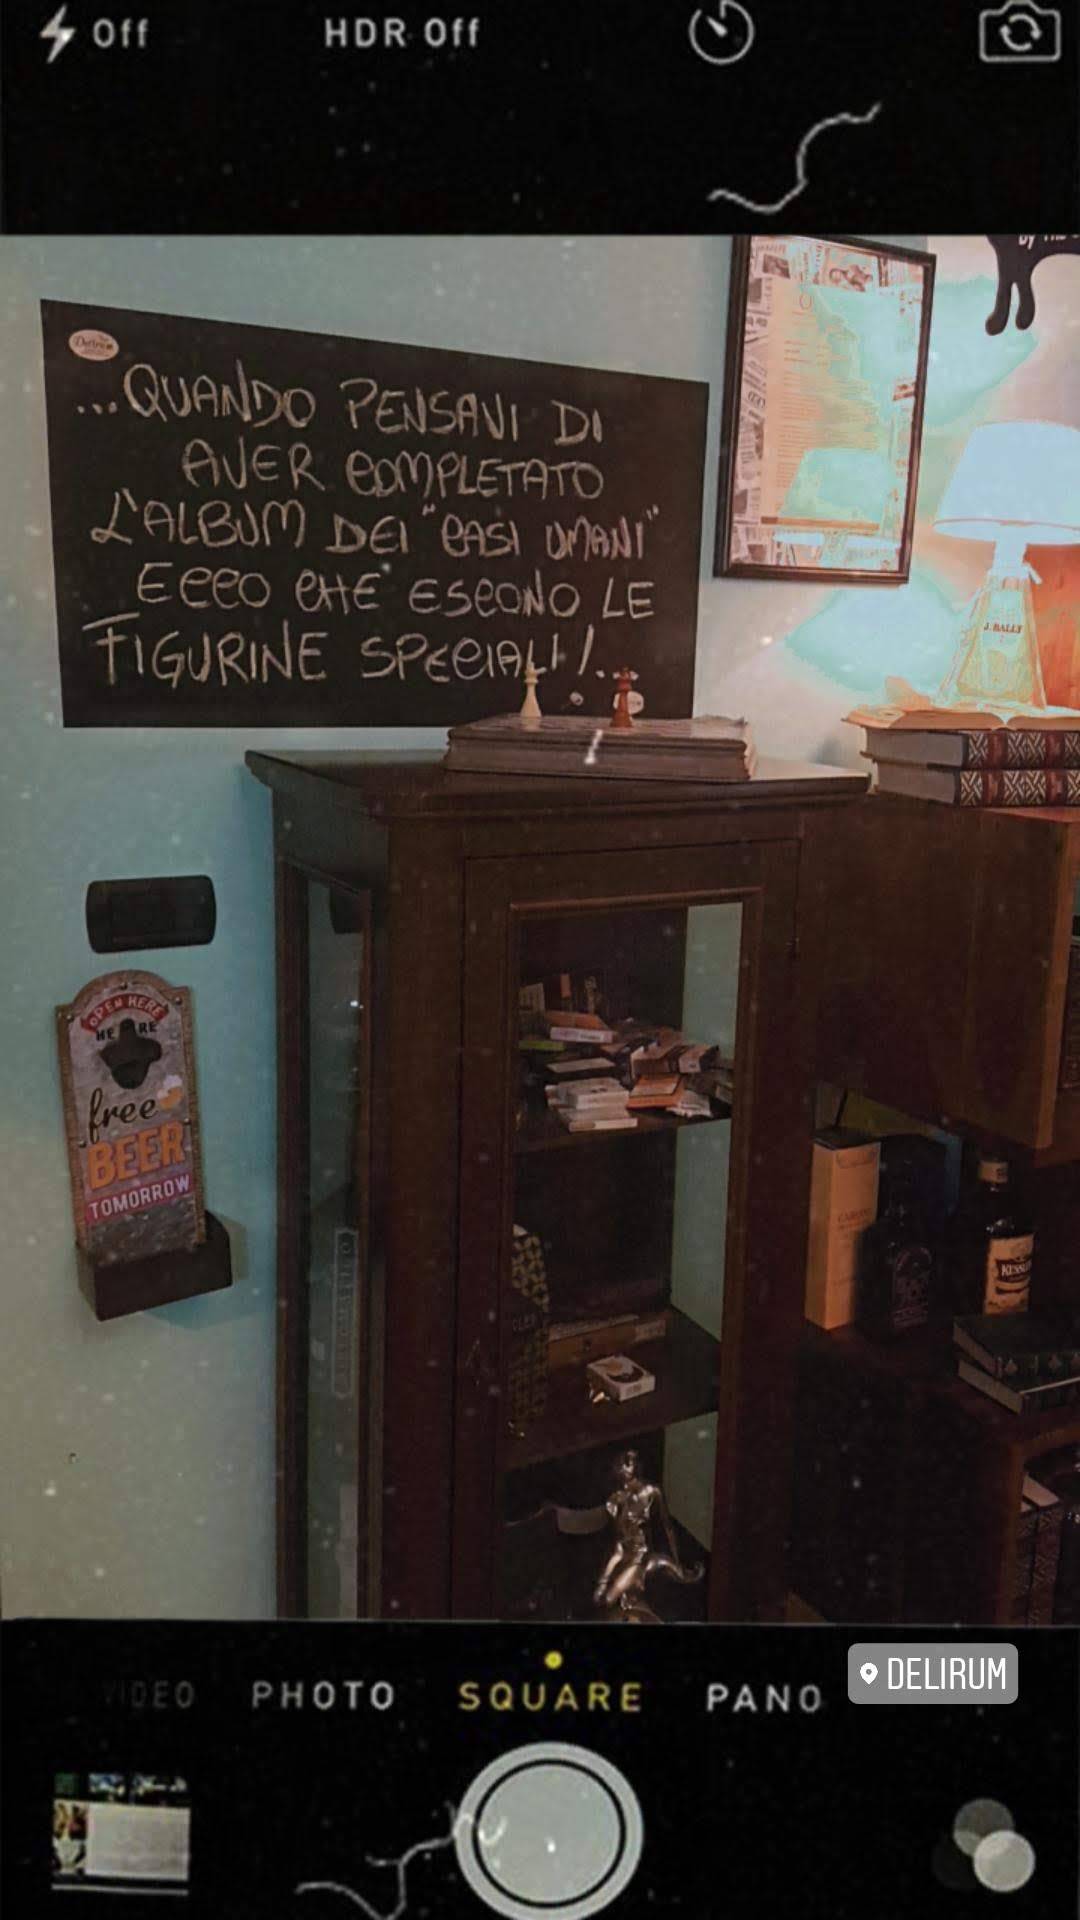 Off
HDR Off
Delirum
...QUANDO PENSAVI DI
AVER COMPLETATO
L'ALBUM DEI "CASI UMANI"
ECCO CHE ESCONO LE
FIGURINE SPECIALI!..
J. BALLY
OPEN HERE
HE RE
free
BEER
TOMORROW
KESSLER
VIDEO
PHOTO
SQUARE
PANO
DELIRUM